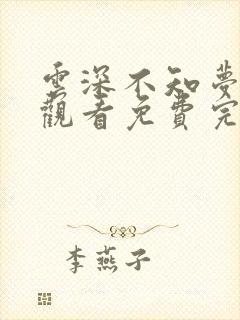 雲深不知夢
觀看免費完
李燕子